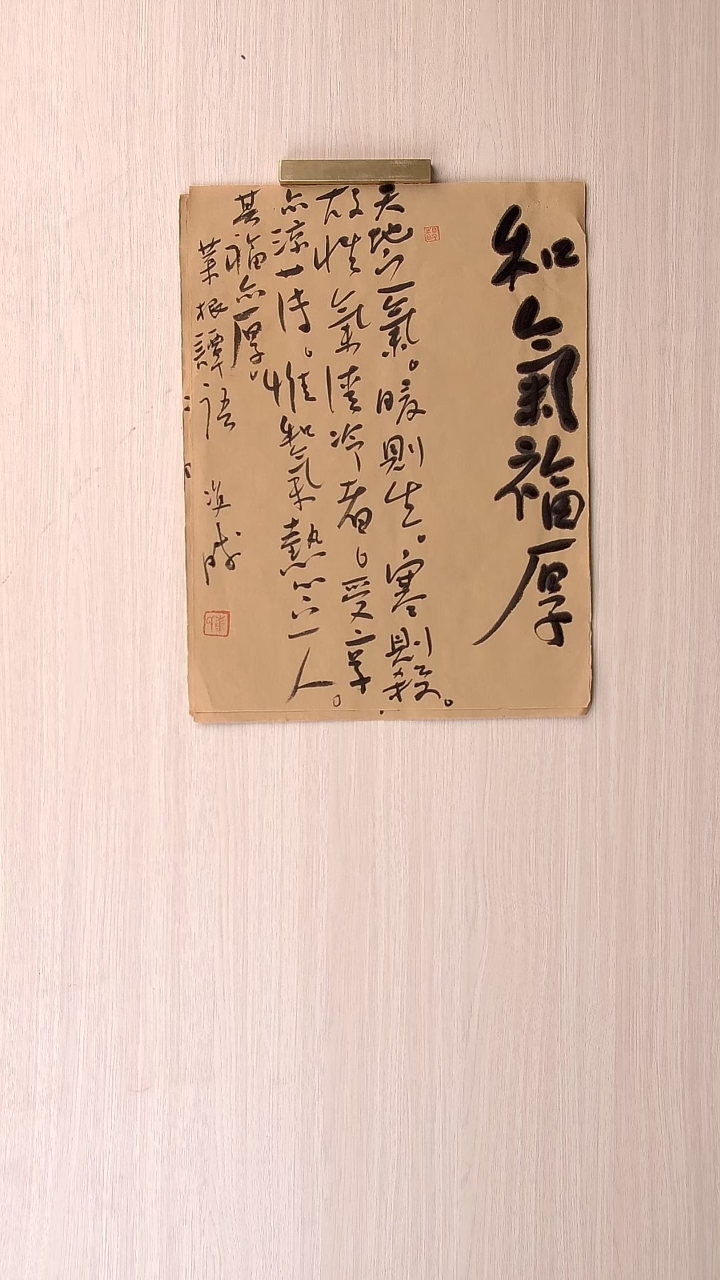 和氣福厚
天地之氣。暖則生。寒則殺。
故性氣清冷者。受享
亦涼薄。惟和氣熱心之人。
其福亦厚。
菜根譚語